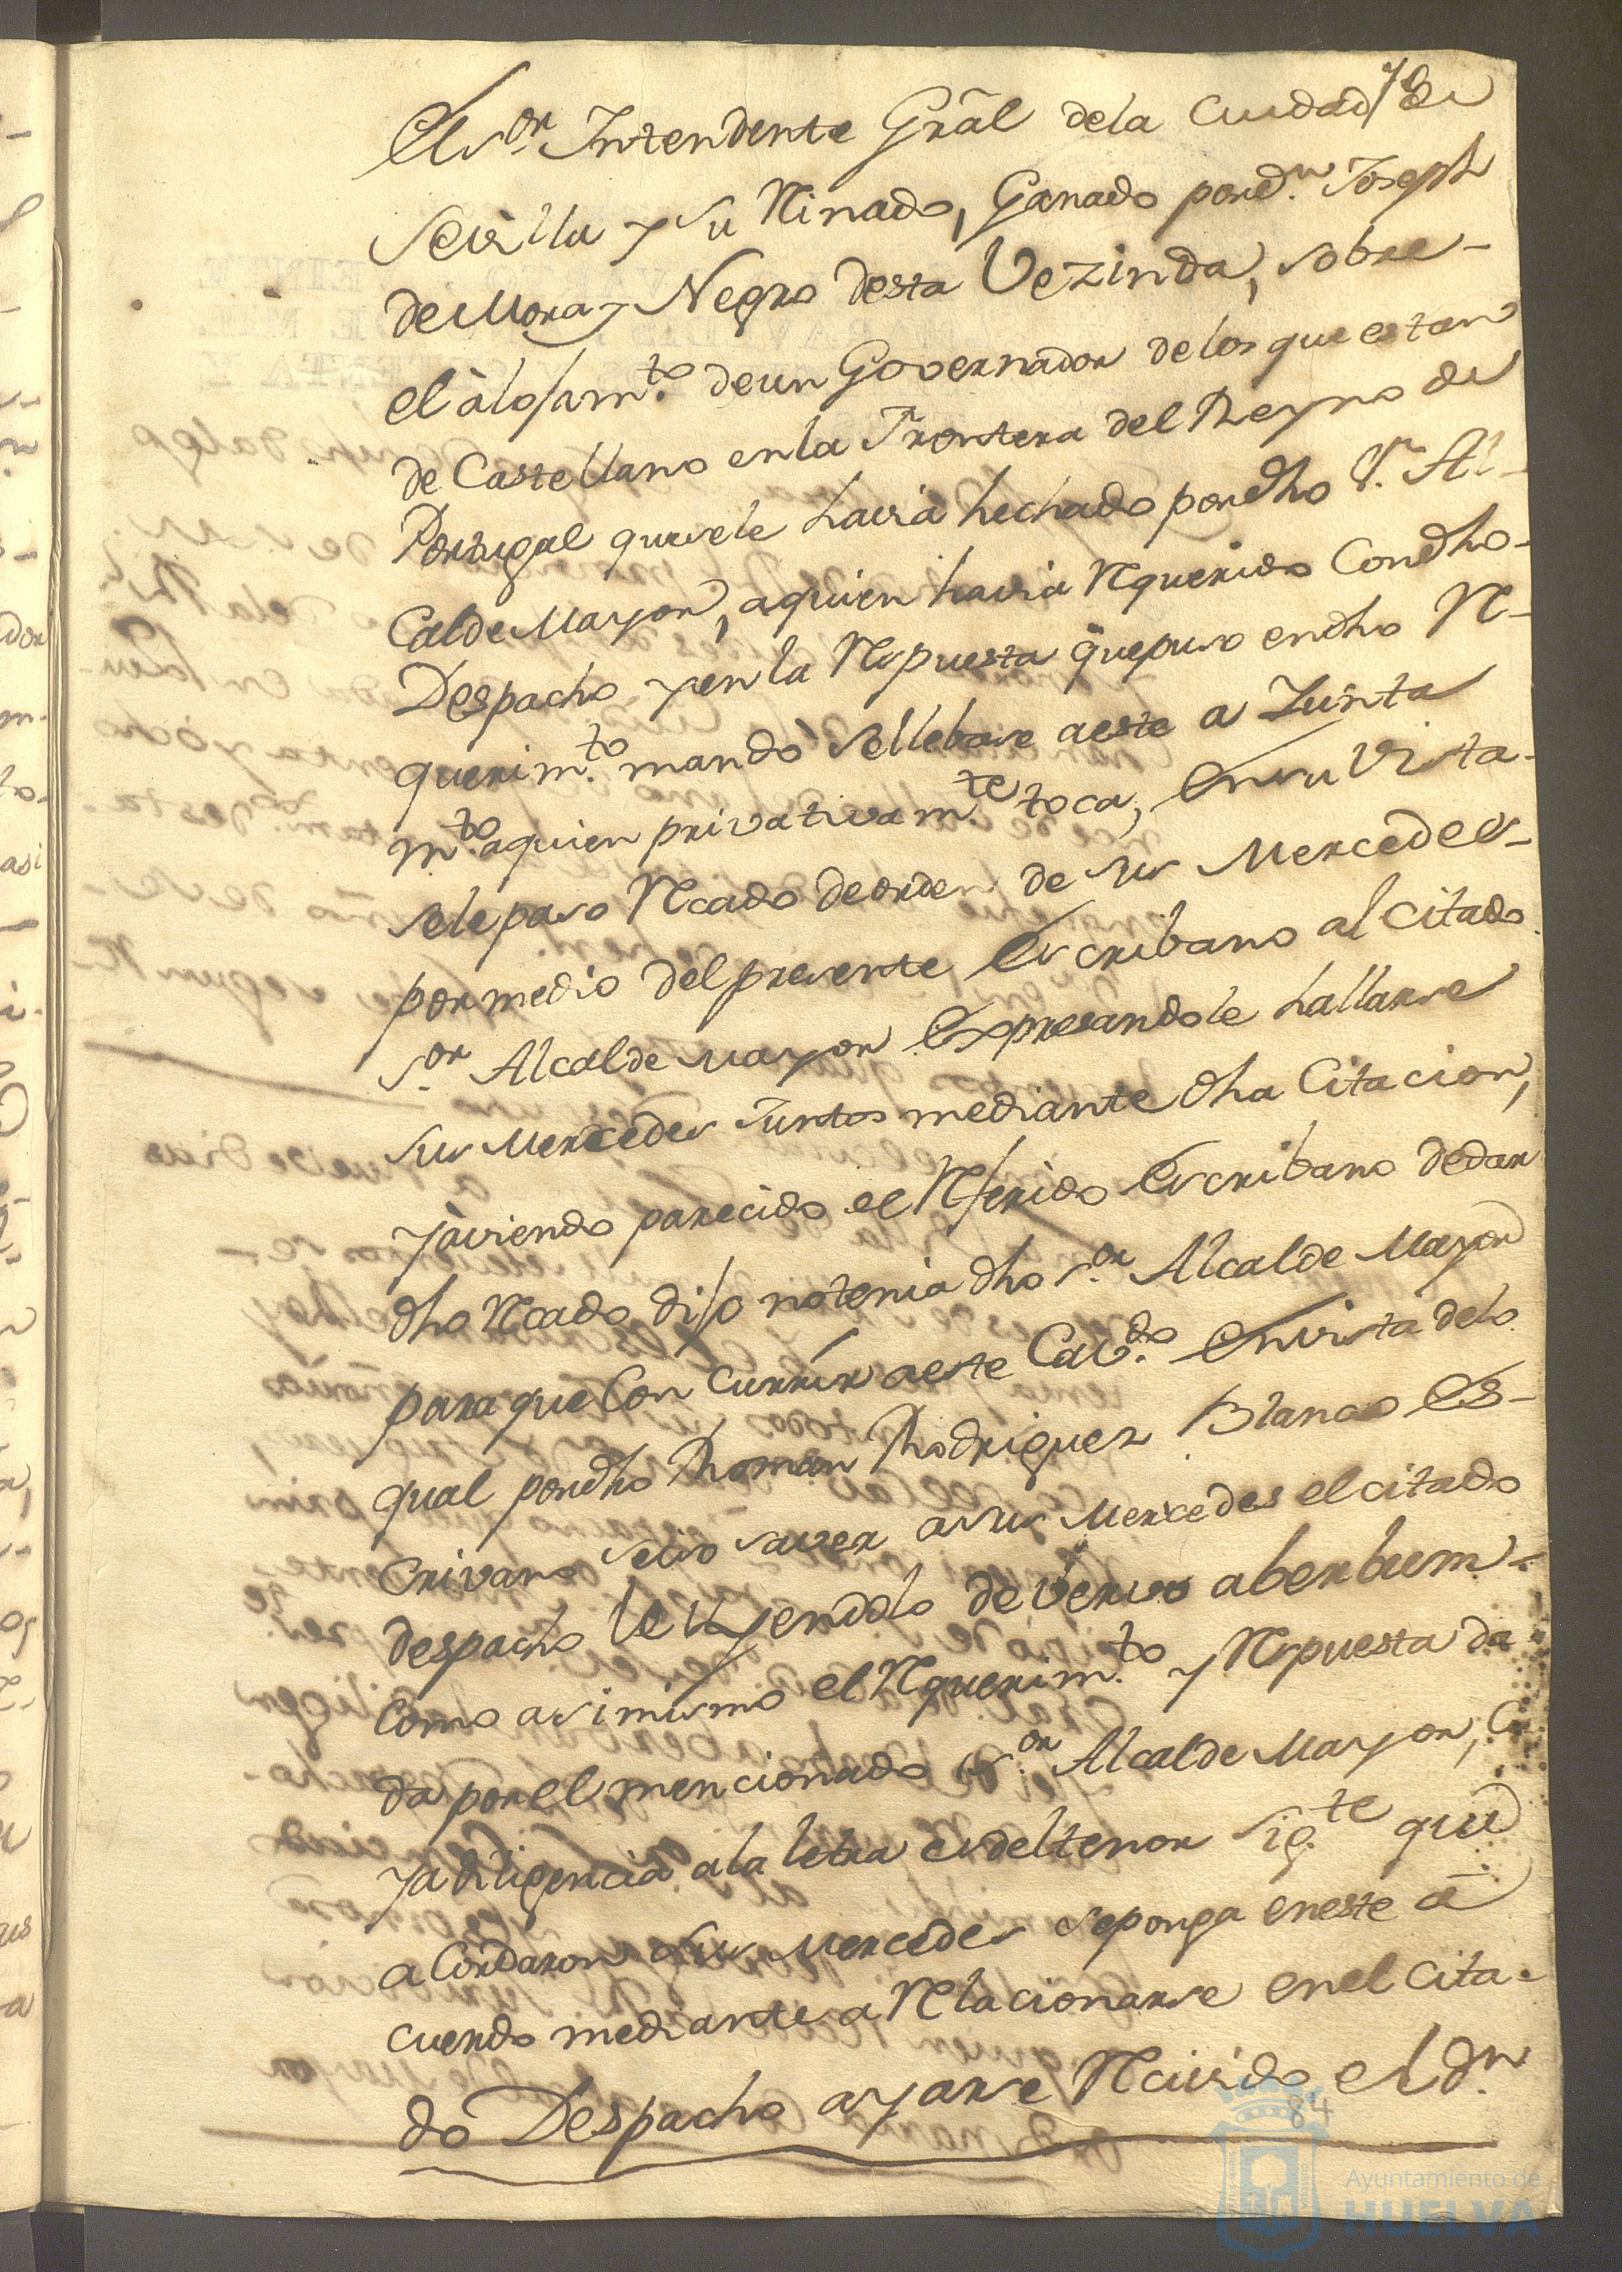 el s.or Intendente Grâl dela Ciudad de
Sevilla y su Rinado, Ganado por d.n Joseph
de Mora y Negro desta Vezinda, sobre-
el àlojam.to de un Governador delos que estan
de Castellano en la Frontera del Reyno de
Portugal que se le havia hechado por dho S.r Al-
Calde Mayor, a quien havia Requerido Con dho-
Despacho y en la Respuesta que puso en dho Re-
querim.to mandó se llebase a este a Junta
m.to a quien privativam.te toca, en su vista-
se le paso Recado de orden de sus Mercedes-
por medio del presente Escribano al citado
s.or Alcalde mayor Expresandole hallarse
sus Mercedes Juntos mediante dha Citacion,
y àviendo parecido el Referido Escribano de dar
dho Recado dijo no tenia dho s.or Alcalde Mayor
para que Con Currir a este Cav.do en vista delo
qual por dho Roman Rodriguez Blanco Es-
Crivano se iso saver a sus Mercedes el citado
despacho leyendolo de vervo aberbum-
Como asimismo el Requerim.to y Respuesta da
da por el mencionado s.or Alcalde Mayor, Cu
ya diligencia a la letra es del tenor sig.te que
a Cordaron sus Mercedes se ponga en este a
cuerdo mediante a Relacionarse en el Cita-
do Despacho ayarse Recivido el d.n
84
Ayuntamiento de
HUELVA